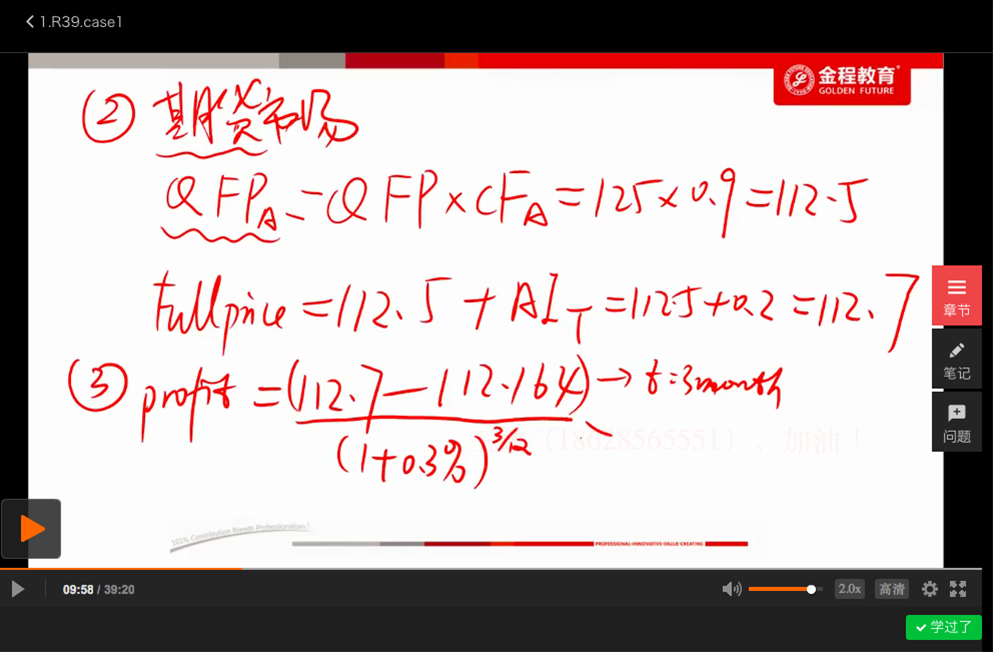 1.R39.case1
金程教育
GOLDEN FUTURE
② 期货市场
QFP_A = QFP × CF_A = 125 × 0.9 = 112.5
Full price = 112.5 + AI_T = 112.5 + 0.2 = 112.7
③ profit = (112.7 − 112.164) → t = 3 month
(1 + 0.3%)^3/12
(18628565551)，加油！
101% Contribution Breeds Professionalism!
PROFESSIONAL·INNOVATIVE·VALUE-CREATING
章节
笔记
问题
09:58 / 39:20
2.0x
高清
学过了